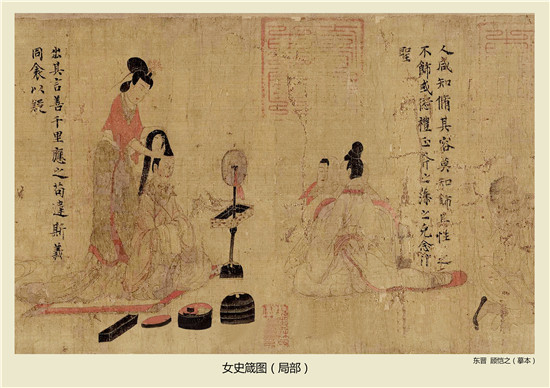 人咸知脩其容莫知飾其性之
不飾或愆禮正斧之藻之克念作
聖
出其言善千里應之苟違斯義
同衾以疑
东晋 顾恺之（摹本）
女史箴图（局部）